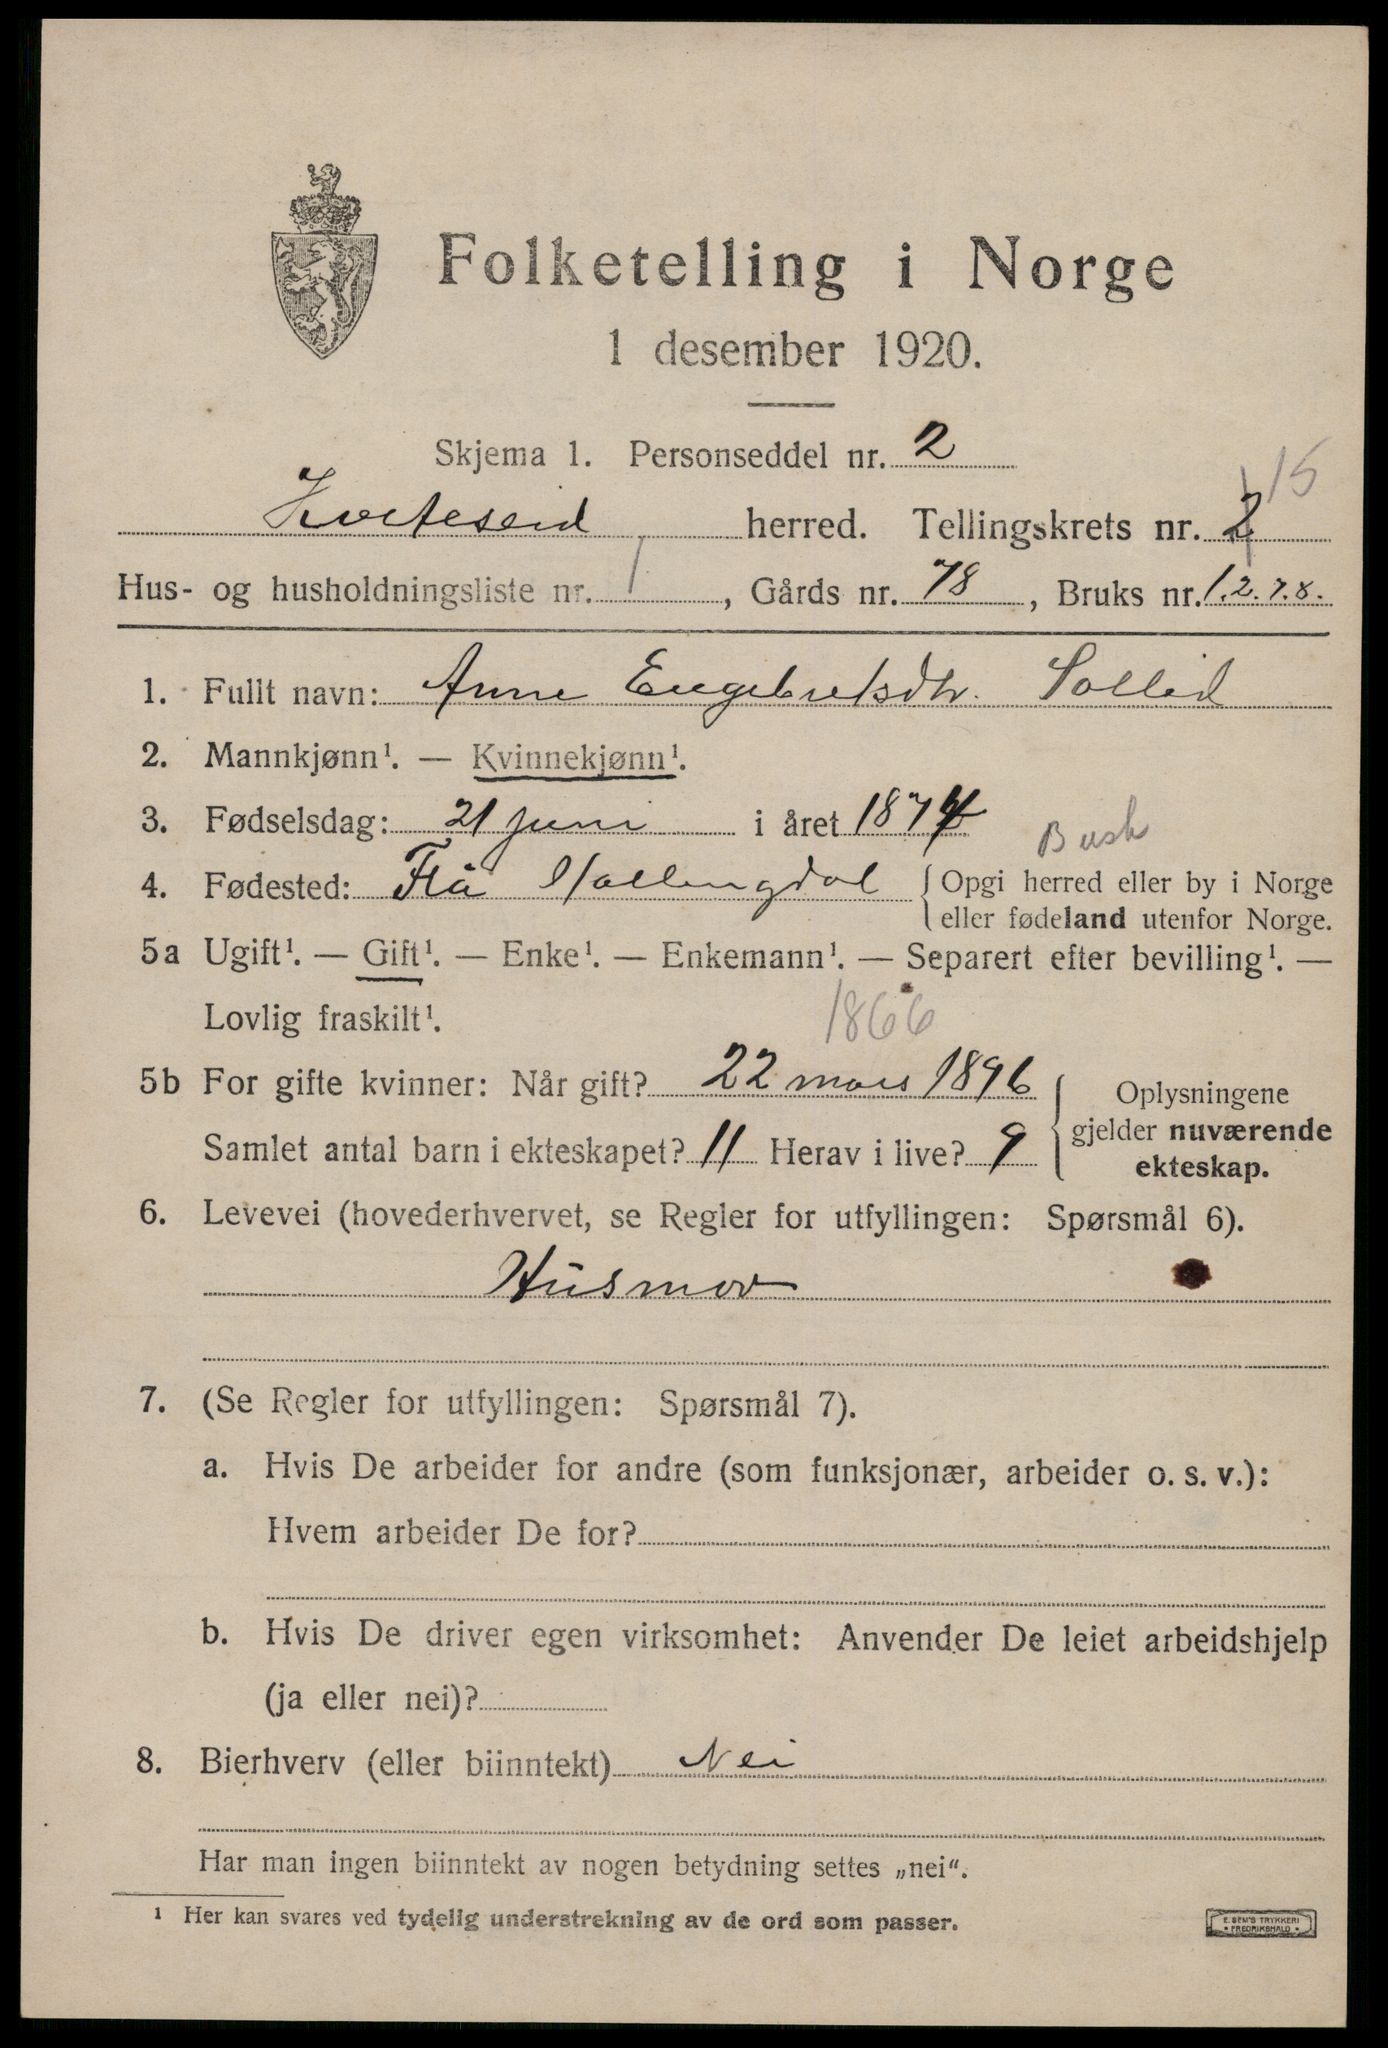 Folketelling i Norge
1 desember 1920.
Skjema 1. Personseddel nr. 2
15
Kviteseid herred. Tellingskrets nr. 2
Hus- og husholdningsliste nr. 1, Gårds nr. 78, Bruks nr. 1.2.7.8.
1. Fullt navn: Anne Engebretsdtr. Sollid
2. Mannkjønn¹. — Kvinnekjønn¹.
3. Fødselsdag: 21 juni i året 1874
Busk
4. Fødested: Flå Hallingdal { Opgi herred eller by i Norge
eller fødeland utenfor Norge.
5a Ugift¹. — Gift¹. — Enke¹. — Enkemann¹. — Separert efter bevilling¹. —
Lovlig fraskilt¹.
1866
5b For gifte kvinner: Når gift? 22 mars 1896
Samlet antal barn i ekteskapet? 11 Herav i live? 9
{ Oplysningene
gjelder nuværende
ekteskap.
6. Levevei (hovederhvervet, se Regler for utfyllingen: Spørsmål 6).
Husmor
7. (Se Regler for utfyllingen: Spørsmål 7).
a. Hvis De arbeider for andre (som funksjonær, arbeider o. s. v.):
Hvem arbeider De for?
b. Hvis De driver egen virksomhet: Anvender De leiet arbeidshjelp
(ja eller nei)?
8. Bierhverv (eller biinntekt) Nei
Har man ingen biinntekt av nogen betydning settes „nei“.
¹ Her kan svares ved tydelig understrekning av de ord som passer.
E. SEM'S TRYKKERI
* FREDRIKSHALD *